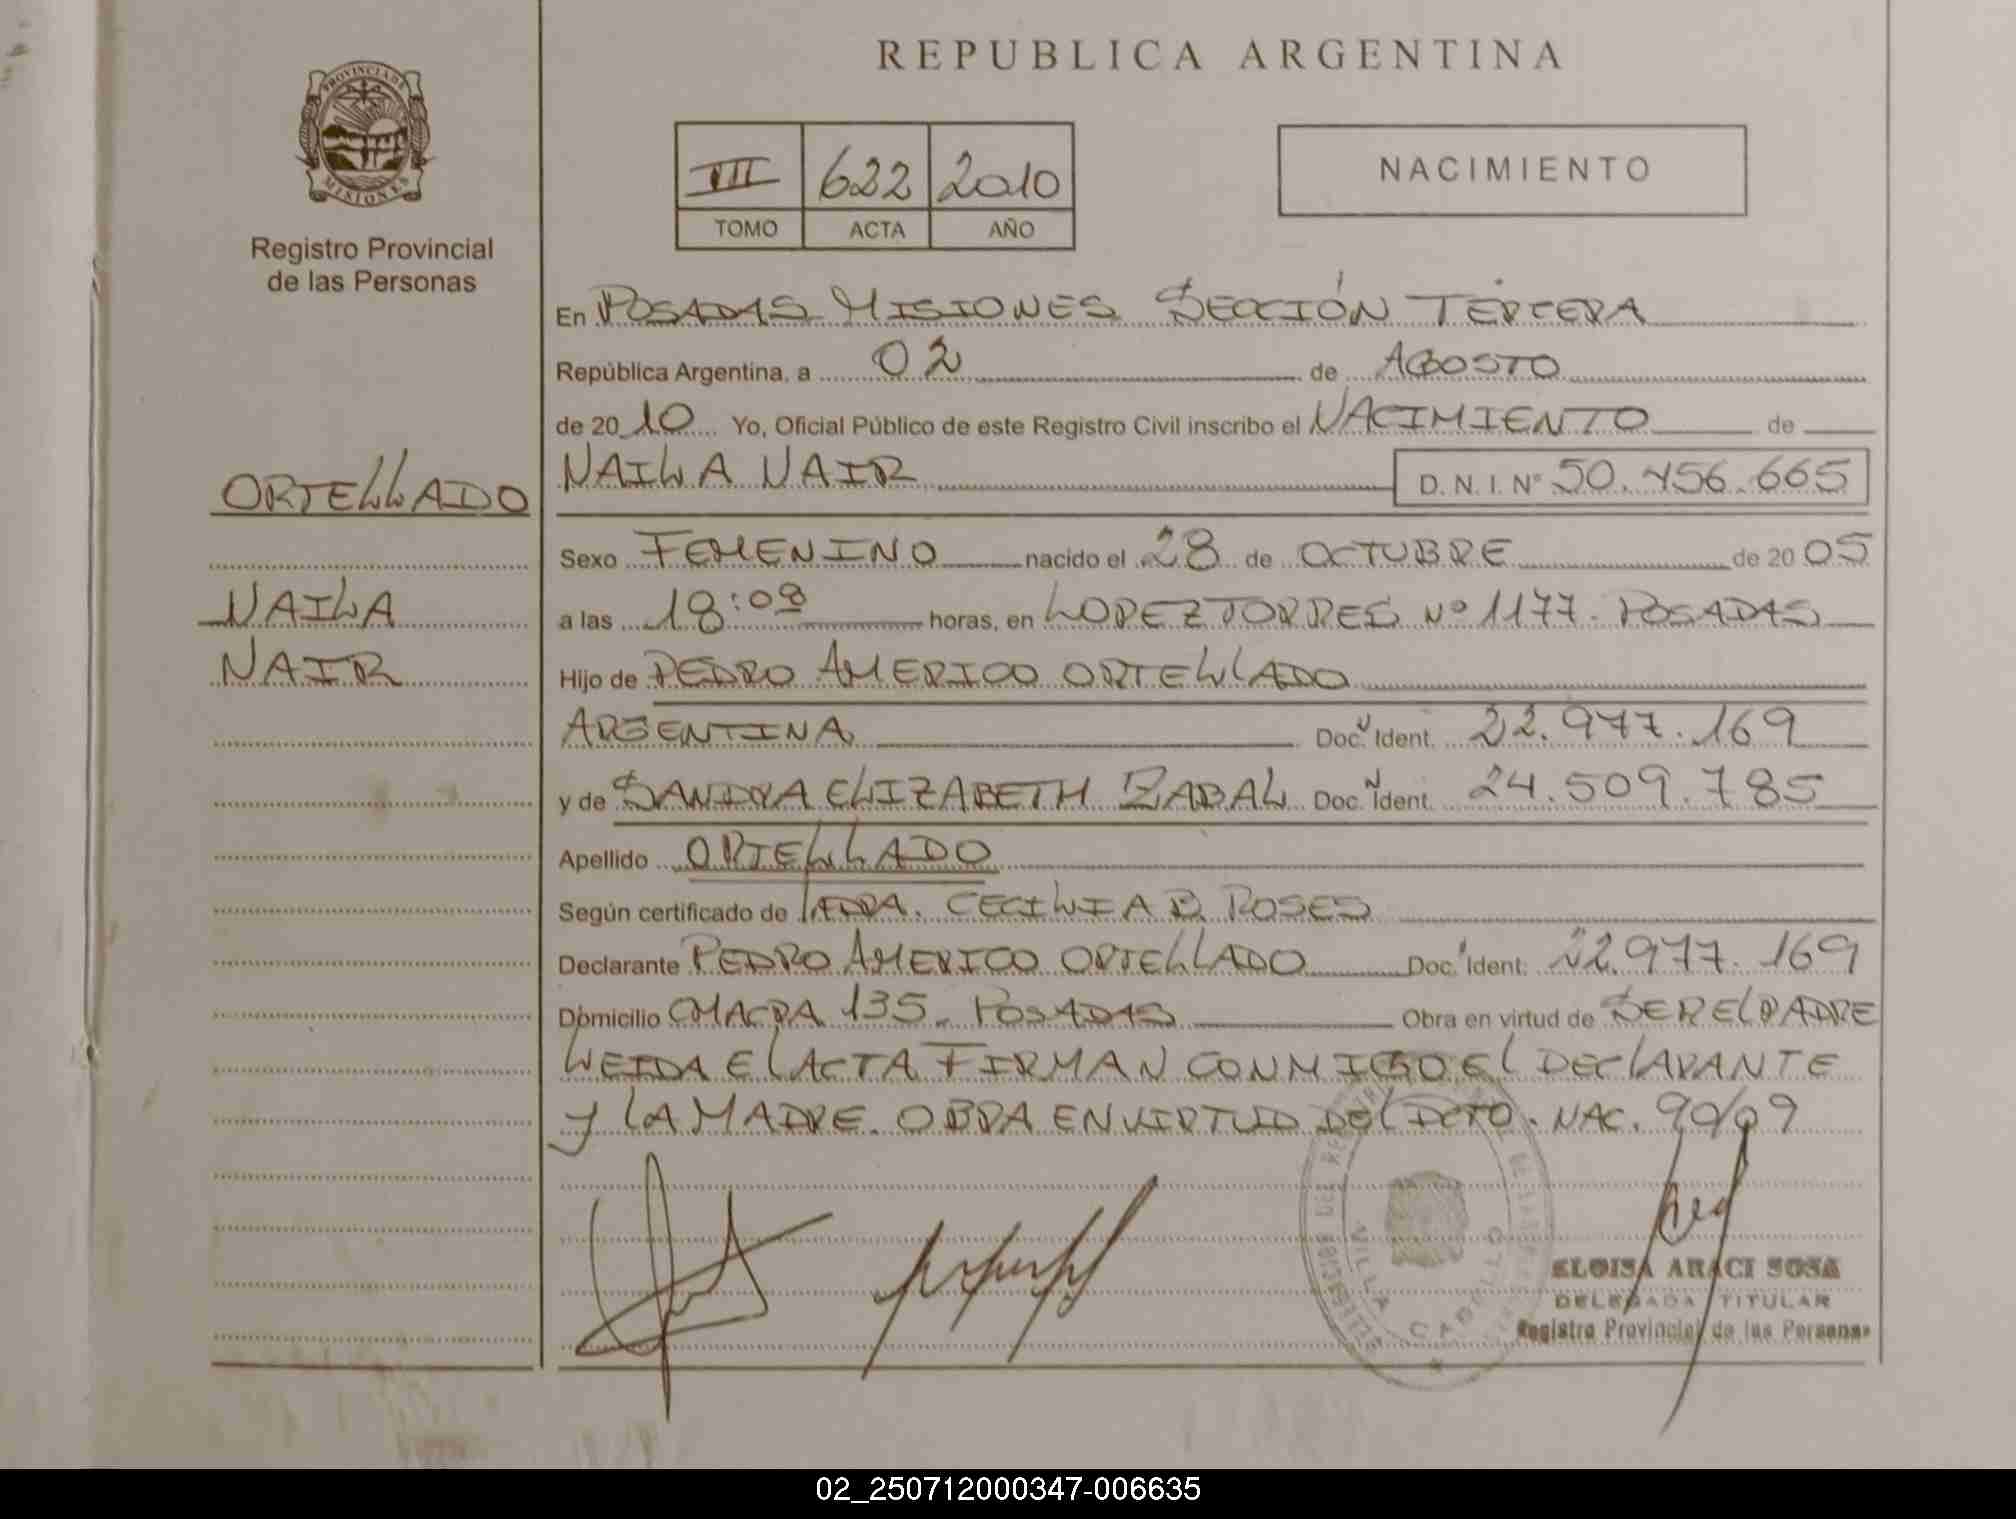 REPUBLICA ARGENTINA
PROVINCIA DE
MISIONES
Registro Provincial
de las Personas
III 622 2010
TOMO ACTA AÑO
NACIMIENTO
En POSADAS MISIONES SECCIÓN TERCERA
República Argentina, a 02 de AGOSTO
de 2010 Yo, Oficial Público de este Registro Civil inscribo el NACIMIENTO de
NAILA NAIR D.N.I. Nº 50.456.665
ORTELLADO
NAILA
NAIR
Sexo FEMENINO nacido el 28 de OCTUBRE de 2005
a las 18:08 horas, en LOPEZ TORRES Nº 1177. POSADAS
Hijo de PEDRO AMERICO ORTELLADO
ARGENTINA Doc. Ident. 22.977.169
y de SANDRA ELIZABETH ZABAL Doc. Ident. 24.509.785
Apellido ORTELLADO
Según certificado de LCDA. CECILIA B. ROSES
Declarante PEDRO AMERICO ORTELLADO Doc. Ident. 22.977.169
Domicilio CHACRA 135. POSADAS Obra en virtud de SER EL PADRE
LEIDA EL ACTA FIRMAN CONMIGO EL DECLARANTE
Y LA MADRE. OBRA EN VIRTUD DEL DCTO. NAC. 90/09
VILLA CABELLO
ELOISA ARACI SOSA
DELEGADA TITULAR
Registro Provincial de las Personas
02_250712000347-006635